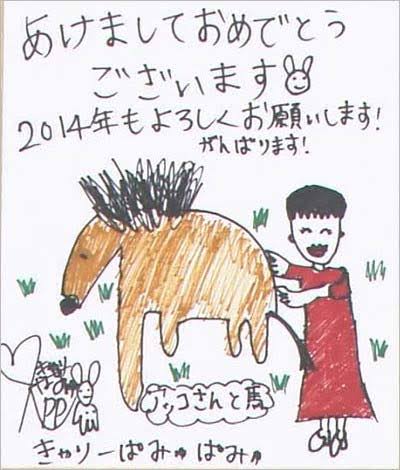 あけましておめでとう
ございます
2014年もよろしくお願いします!
がんばります!
アッコさんと馬
きゃりーぱみゅぱみゅ